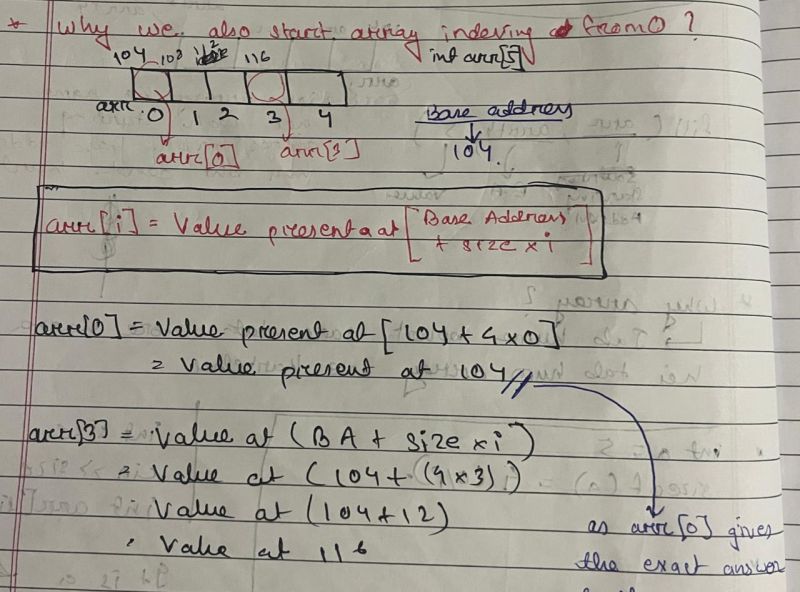 * Why we also start array indexing from 0 ?
104 108 112 116 int arr[5]
arr: 0 1 2 3 4 Base address
arr[0] arr[3] 104.
arr[i] = Value present at [Base Address
+ size x i]
arr[0] = Value present at [104 + 4 x 0]
= Value present at 104 //
arr[3] = Value at (BA + size x i)
= Value at (104 + (4 x 3))
= Value at (104 + 12)
= Value at 116
as arr[0] gives
the exact answer